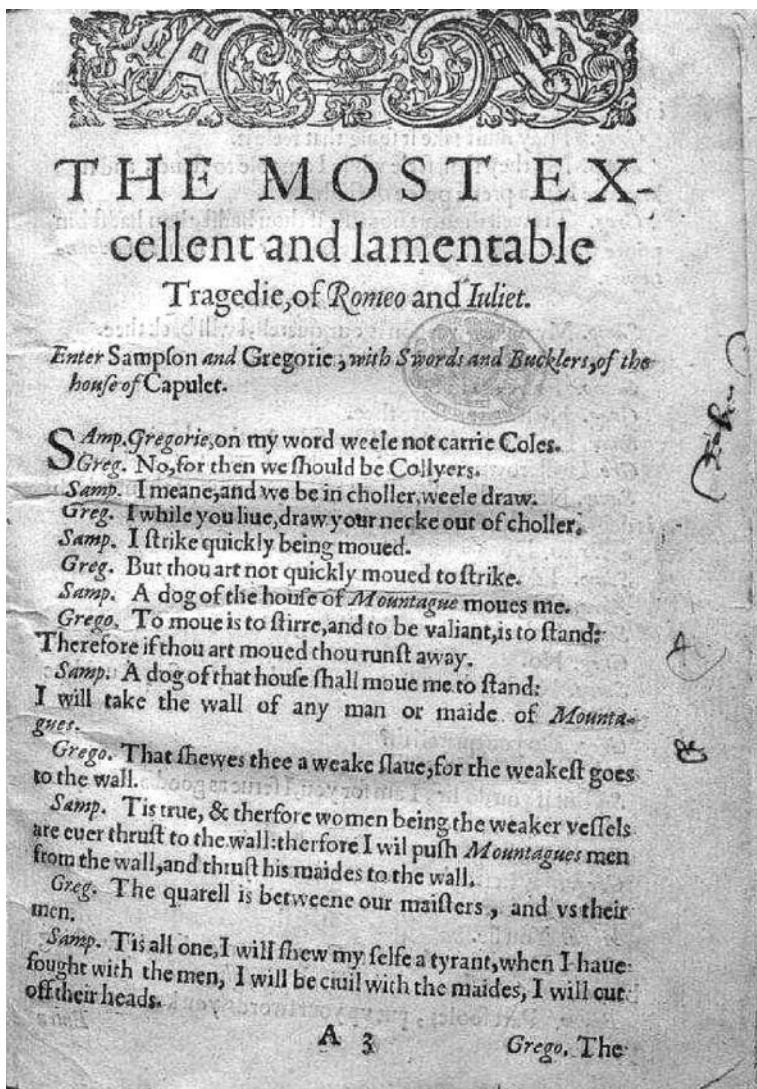 THE MOST EX-
cellent and lamentable
Tragedie, of Romeo and Iuliet.
Enter Sampson and Gregorie, with Swords and Bucklers, of the
houſe of Capulet.
SAmp. Gregorie, on my word weele not carrie Coles.
Greg. No, for then we ſhould be Collyers.
Samp. I meane, and we be in choller, weele draw.
Greg. I while you liue, draw your necke out of choller.
Samp. I ſtrike quickly being moued.
Greg. But thou art not quickly moued to ſtrike.
Samp. A dog of the houſe of Mountague moues me.
Grego. To moue is to ſtirre, and to be valiant, is to ſtand:
Therefore if thou art moued thou runſt away.
Samp. A dog of that houſe ſhall moue me to ſtand:
I will take the wall of any man or maide of Mounta-
gues.
Grego. That ſhewes thee a weake ſlaue, for the weakeſt goes
to the wall.
Samp. Tis true, & therfore women being the weaker veſſels
are euer thruſt to the wall: therfore I wil puſh Mountagues men
from the wall, and thruſt his maides to the wall.
Greg. The quarell is betweene our maiſters, and vs their
men.
Samp. Tis all one, I will ſhew my ſelfe a tyrant, when I haue
fought with the men, I will be ciuil with the maides, I will cut
off their heads.
A 3
Grego. The